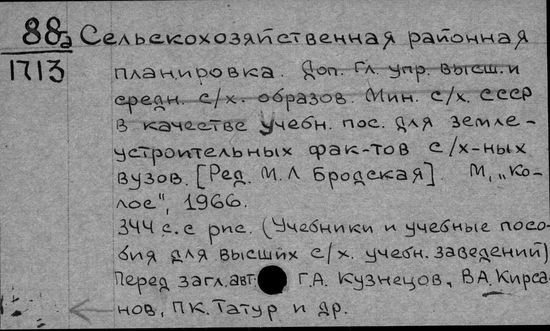 88а Сельскохозяйственная районная
1713 планировка. Доп. Гл. упр. высш. и
средн. с/х. образов. Мин. с/х. СССР
в качестве учебн. пос. для земле-
устроительных фак-тов с/х-ных
вузов. [Ред. М.Л Бродская]. М., "Ко-
лос", 1966.
344 с. с рис. (Учебники и учебные посо-
бия для высших с/х. учебн. заведений)
Перед загл. авт. Г.А. Кузнецов, В.А. Кирса
нов, П.К. Татур и др.